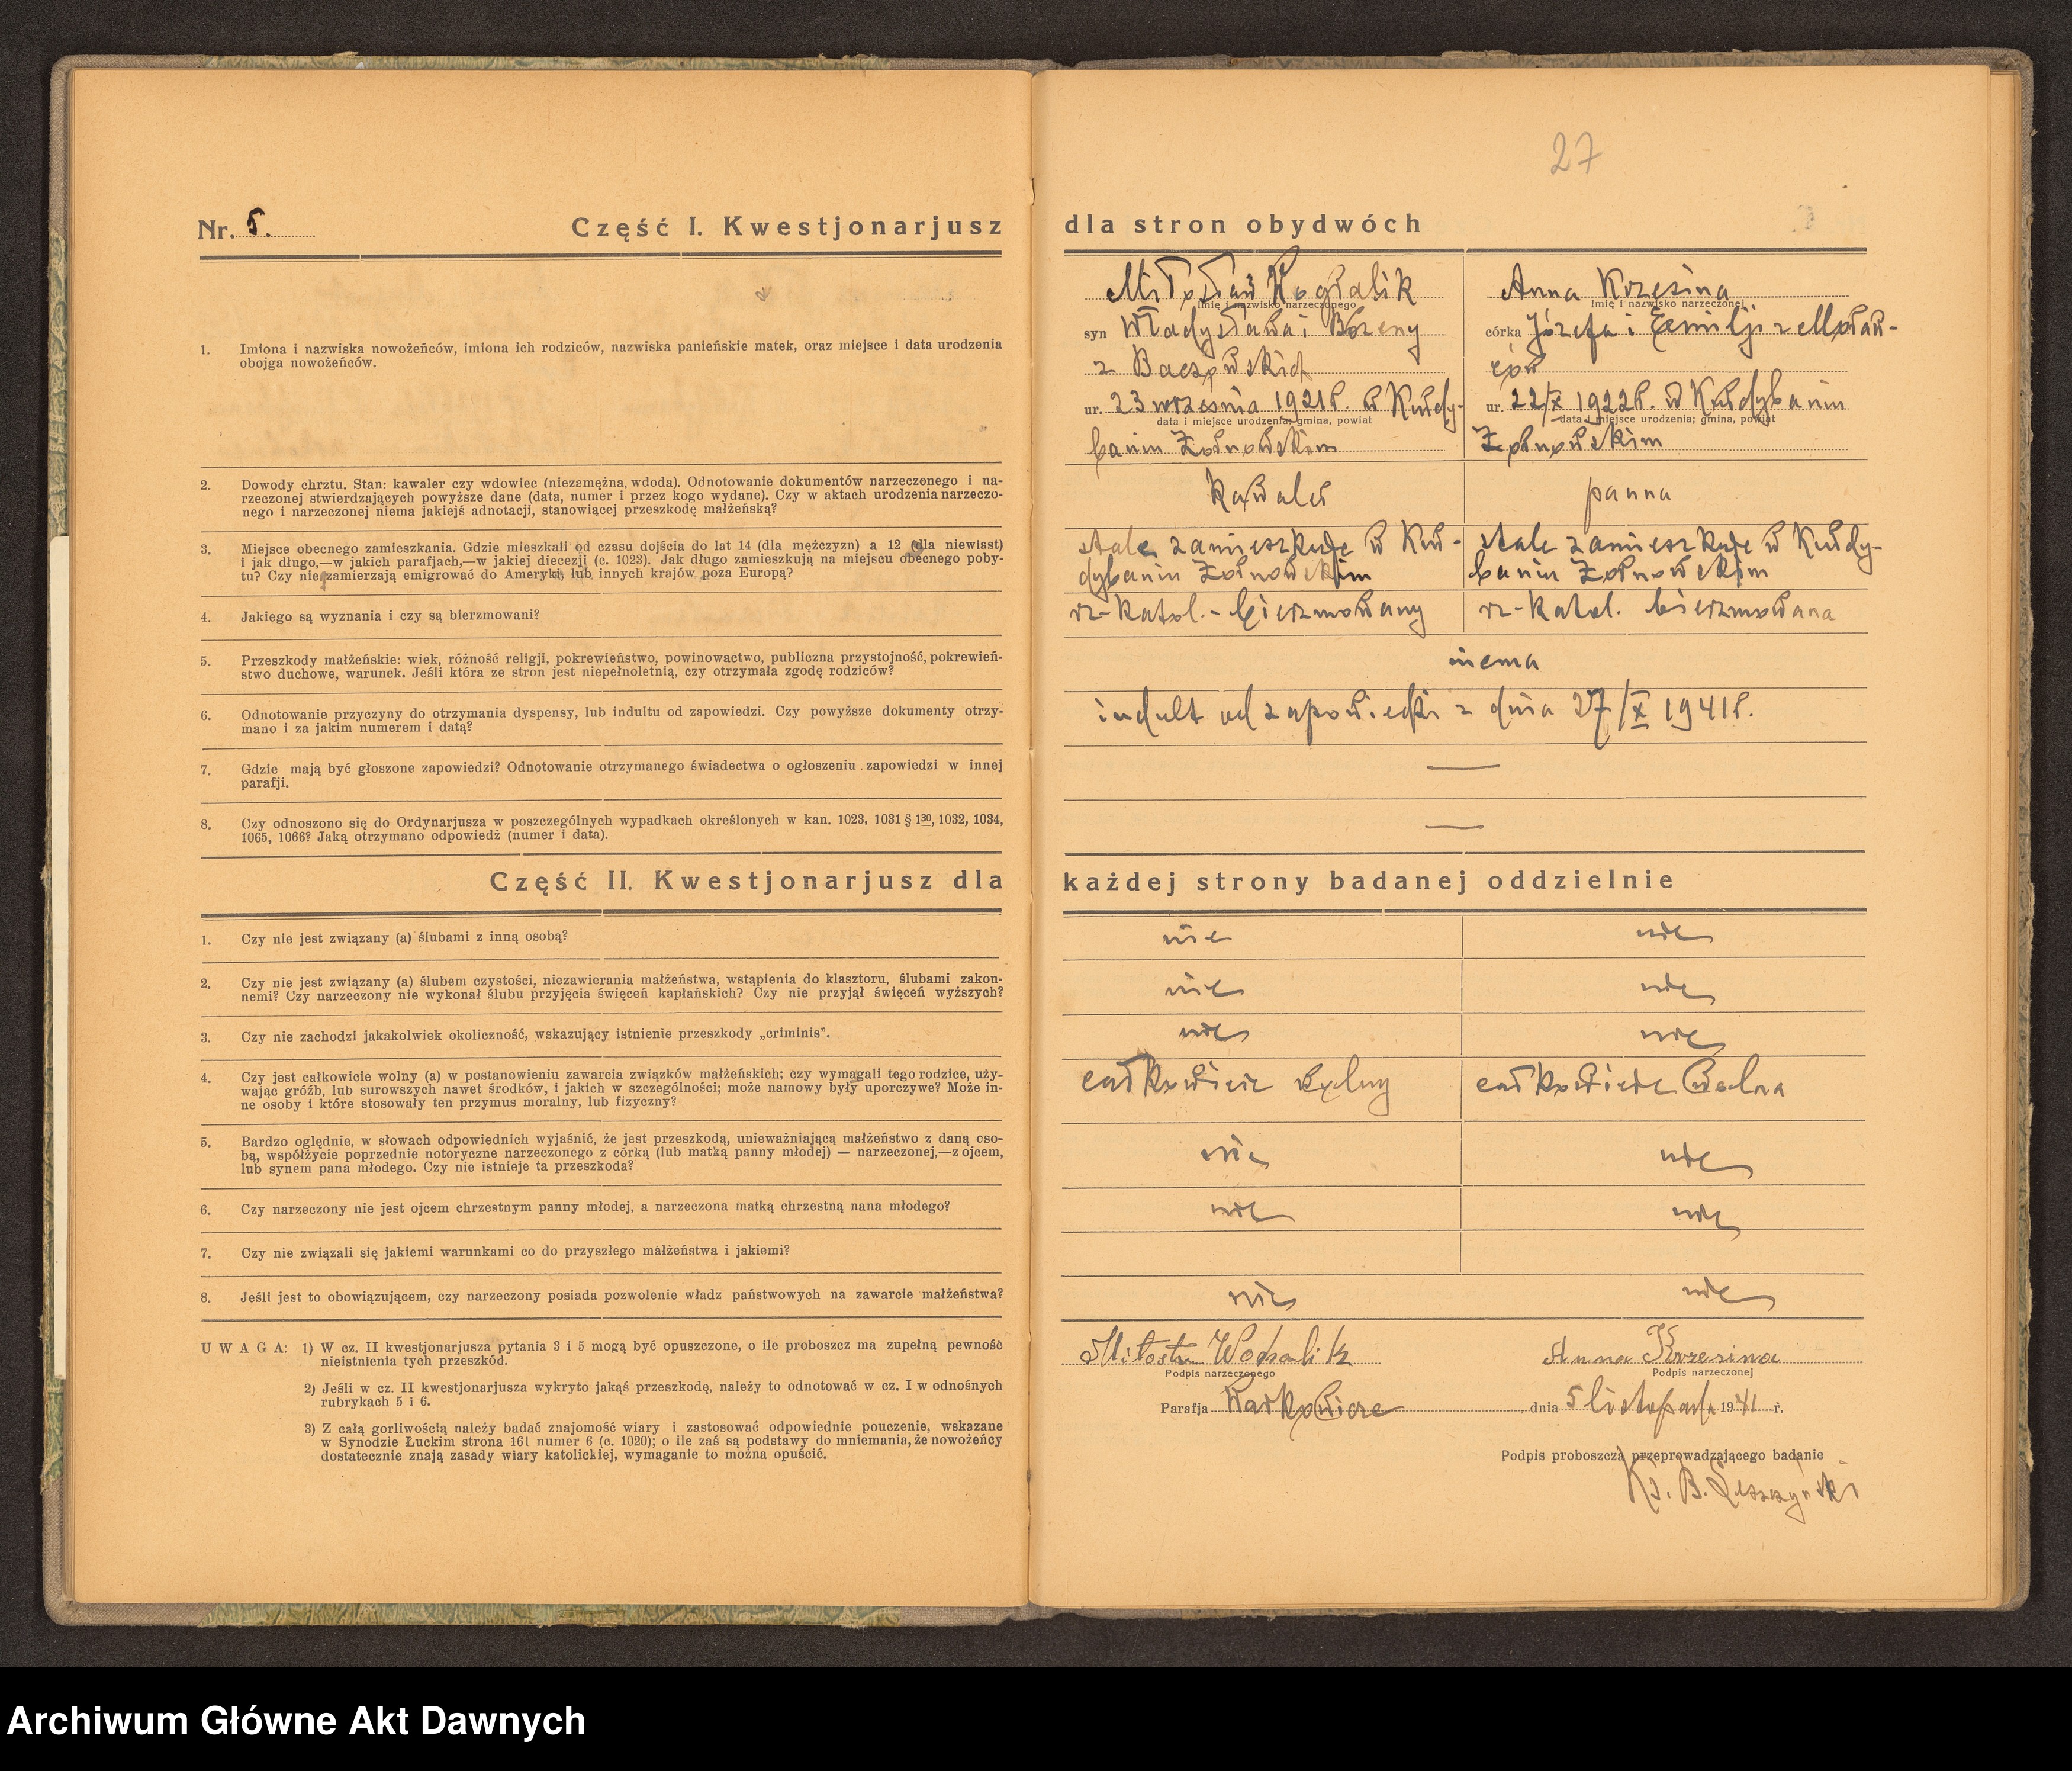 27
Nr. 5. Część I. Kwestjonarjusz dla stron obydwóch
1. Imiona i nazwiska nowożeńców, imiona ich rodziców, nazwiska panieńskie matek, oraz miejsce i data urodzenia
obojga nowożeńców.
Miłosław
imię i nazwisko narzeczonego
syn Władysława i Bożeny
z Baczowskich
ur. 23 września 1921 r. w Kułdy-
data i miejsce urodzenia; gmina, powiat
baniu Żołnowskim
Anna Krzesina
imię i nazwisko narzeczonej
córka Józefa i Emilji z
ur. 22/X 1922 r. w Kułdybaniu
data i miejsce urodzenia; gmina, powiat
Żołnowskim
2. Dowody chrztu. Stan: kawaler czy wdowiec (niezamężna, wdoda). Odnotowanie dokumentów narzeczonego i na-
rzeczonej stwierdzających powyższe dane (data, numer i przez kogo wydane). Czy w aktach urodzenia narzeczo-
nego i narzeczonej niema jakiejś adnotacji, stanowiącej przeszkodę małżeńską?
kawaler
panna
3. Miejsce obecnego zamieszkania. Gdzie mieszkali od czasu dojścia do lat 14 (dla mężczyzn) a 12 (dla niewiast)
i jak długo,—w jakich parafjach,—w jakiej diecezji (c. 1023). Jak długo zamieszkują na miejscu obecnego poby-
tu? Czy nie zamierzają emigrować do Ameryki, lub innych krajów poza Europą?
stale zamieszkuje w Kuł-
dybaniu Żołnowskim
stale zamieszkuje w Kułdy-
baniu Żołnowskim
4. Jakiego są wyznania i czy są bierzmowani?
rz-katol. - bierzmowany
rz-katol. bierzmowana
5. Przeszkody małżeńskie: wiek, różność religji, pokrewieństwo, powinowactwo, publiczna przystojność, pokrewień-
stwo duchowe, warunek. Jeśli która ze stron jest niepełnoletnią, czy otrzymała zgodę rodziców?
niema
6. Odnotowanie przyczyny do otrzymania dyspensy, lub indultu od zapowiedzi. Czy powyższe dokumenty otrzy-
mano i za jakim numerem i datą?
indult od zapowiedzi z dnia 27/X 1941 r.
7. Gdzie mają być głoszone zapowiedzi? Odnotowanie otrzymanego świadectwa o ogłoszeniu zapowiedzi w innej
parafji.
—
8. Czy odnoszono się do Ordynarjusza w poszczególnych wypadkach określonych w kan. 1023, 1031 § 1 30, 1032, 1034,
1065, 1066? Jaką otrzymano odpowiedż (numer i data).
—
Część II. Kwestjonarjusz dla każdej strony badanej oddzielnie
1. Czy nie jest związany (a) ślubami z inną osobą?
nie nie
2. Czy nie jest związany (a) ślubem czystości, niezawierania małżeństwa, wstąpienia do klasztoru, ślubami zakon-
nemi? Czy narzeczony nie wykonał ślubu przyjęcia święceń kapłańskich? Czy nie przyjął święceń wyższych?
nie nie
3. Czy nie zachodzi jakakolwiek okoliczność, wskazujący istnienie przeszkody „criminis".
nie nie
4. Czy jest całkowicie wolny (a) w postanowieniu zawarcia związków małżeńskich; czy wymagali tego rodzice, uży-
wając gróźb, lub surowszych nawet środków, i jakich w szczególności; może namowy były uporczywe? Może in-
ne osoby i które stosowały ten przymus moralny, lub fizyczny?
całkowicie wolny całkowicie wolna
5. Bardzo oględnie, w słowach odpowiednich wyjaśnić, że jest przeszkodą, unieważniającą małżeństwo z daną oso-
bą, współżycie poprzednie notoryczne narzeczonego z córką (lub matką panny młodej) — narzeczonej,—z ojcem,
lub synem pana młodego. Czy nie istnieje ta przeszkoda?
nie nie
6. Czy narzeczony nie jest ojcem chrzestnym panny młodej, a narzeczona matką chrzestną nana młodego?
nie nie
7. Czy nie związali się jakiemi warunkami co do przyszłego małżeństwa i jakiemi?
8. Jeśli jest to obowiązującem, czy narzeczony posiada pozwolenie władz państwowych na zawarcie małżeństwa?
nie nie
UWAGA: 1) W cz. II kwestjonarjusza pytania 3 i 5 mogą być opuszczone, o ile proboszcz ma zupełną pewność
nieistnienia tych przeszkód.
2) Jeśli w cz. II kwestjonarjusza wykryto jakąś przeszkodę, należy to odnotować w cz. I w odnośnych
rubrykach 5 i 6.
3) Z całą gorliwością należy badać znajomość wiary i zastosować odpowiednie pouczenie, wskazane
w Synodzie Łuckim strona 161 numer 6 (c. 1020); o ile zaś są podstawy do mniemania, że nowożeńcy
dostatecznie znają zasady wiary katolickiej, wymaganie to można opuścić.
Anna Krzesina
Podpis narzeczonego Podpis narzeczonej
Parafja Karłowicze dnia 5 listopada 1941 r.
Podpis proboszcza przeprowadzającego badanie
Ks. B.
Archiwum Główne Akt Dawnych